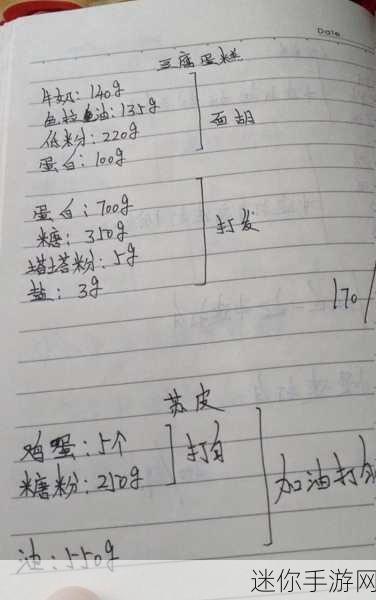 Date
三层蛋糕
牛奶:140g
色拉油:135g
低粉:220g
蛋白:100g
面胡
蛋白:700g
糖:350g
塔塔粉:5g
盐:3g
打发
170/
苏皮
鸡蛋:5个
糖粉:250g
打白
加油打
油:550g
迷你手游网